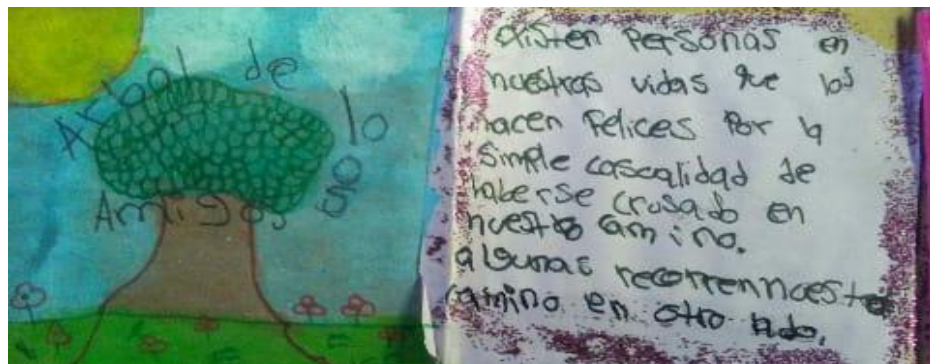 Arbol de
los
Amigos
existen Personas en
nuestras vidas que los
hacen felices Por la
simple cascalidad de
haberse crusado en
nuestro camino.
algunas recorren nuestro
camino en otro lado.